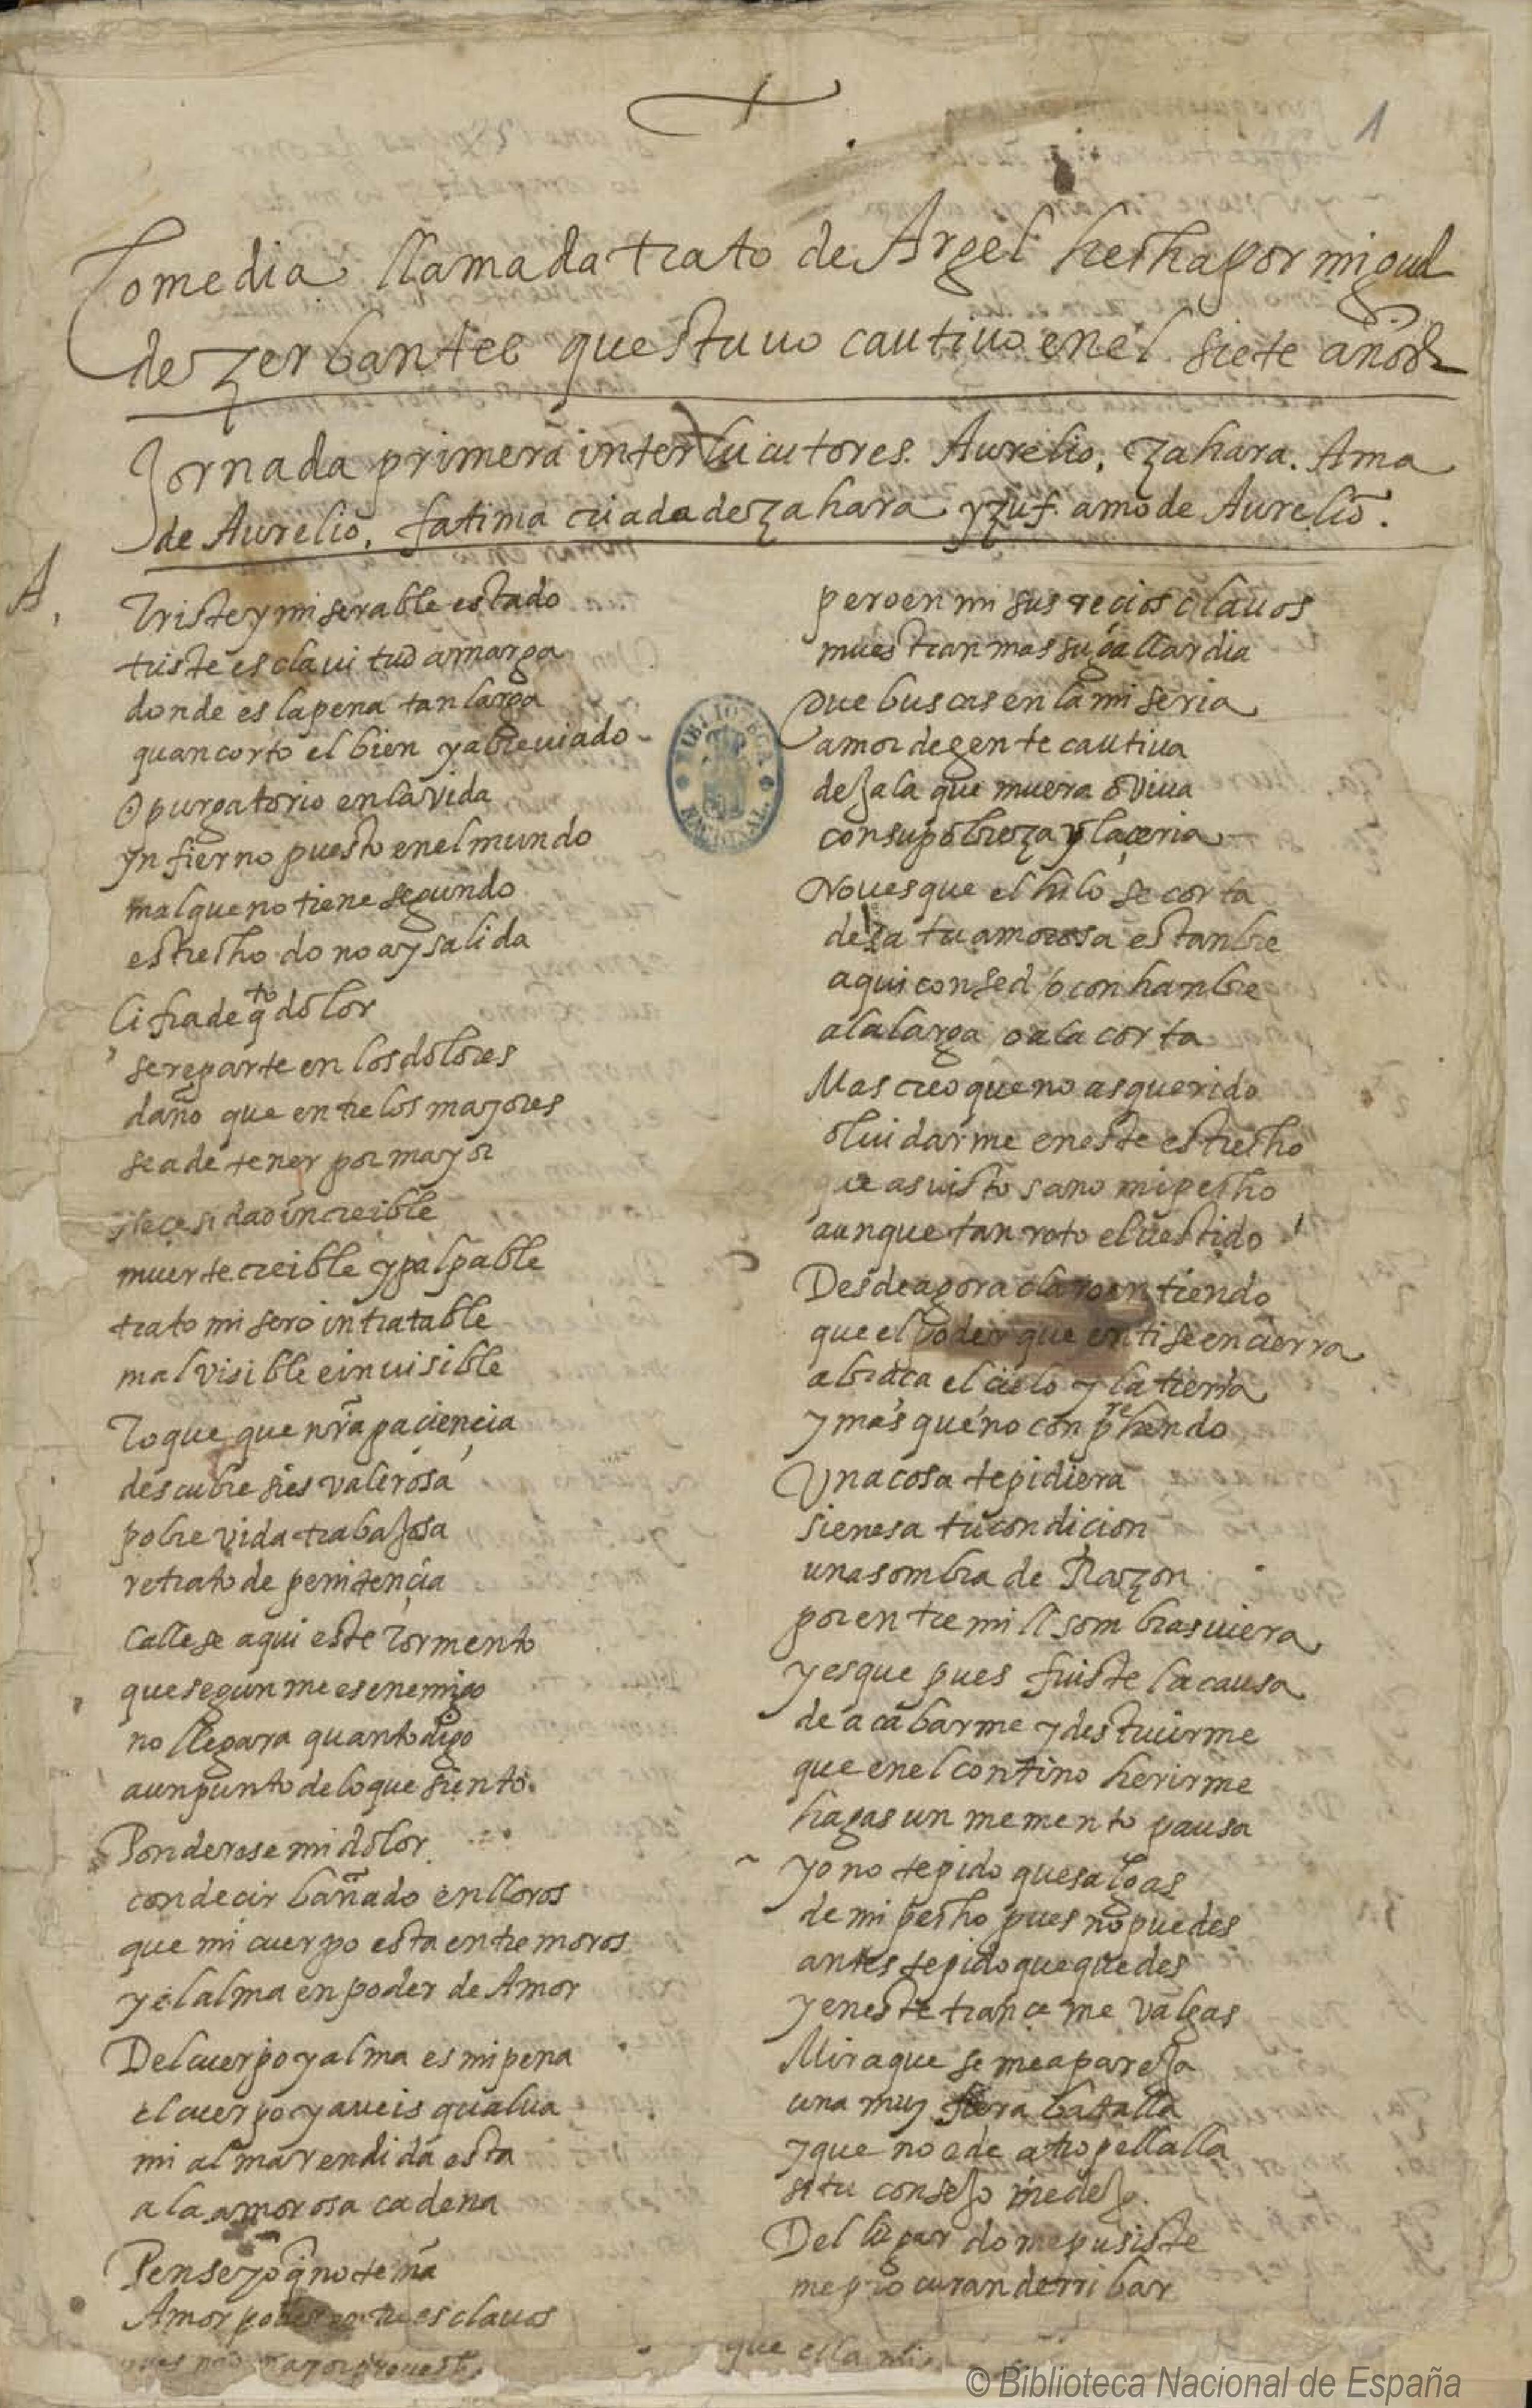 1
Comedia llamada trato de Argel hecha por miguel
de zerbantes questuuo cautiuo en el siete años
Jornada primera interlucutores. Aurelio. Zahara. Ama
de Aurelio. fatima criada de zahara yzuf. amo de Aurelio.
A.
Triste y miserable estado
triste esclauitud amarga
donde es la pena tan larga
quan corto el bien y abreuiado
O purgatorio en la vida
ynfierno puesto en el mundo
mal que no tiene segundo
estrecho do no ay salida
Cifra de qto dolor
se reparte en los dolores
daño que entre los mayores
se a de tener por mayor
necesidad increible
muerte creible y palpable
trato misero intratable
mal visible e inuisible
Toque que nra paciencia
descubre si es valerosa
pobre vida trabajosa
retrato de penitencia
Callese aqui este tormento
que segun me es enemigo
no llegara quanto digo
a un punto de lo que siento.
Ponderese mi dolor
con decir bañado en lloros
que mi cuerpo esta entre moros
y el alma en poder de Amor
Del cuerpo y alma es mi pena
el cuerpo ya ueis qual ua
mi alma rendida esta
a la amorosa cadena
Pense yo q no tenia
Amor poder entre esclauos
pero en mi sus recios clauos
muestran mas su gallardia
Que buscas en la miseria
amor de gente cautiua
dejala que muera o viua
con su pobreza y laceria
No ues que el hilo se corta
desta tu amorosa estanbre
aqui con sed o con hanbre
a la larga o a la corta
Mas creo que no as querido
oluidarme en este estrecho
que as uisto sano mi pecho
aunque tan roto el uestido
Desde agora claro entiendo
que el poder que en ti se encierra
abraca el cielo y la tierra
y mas que no conprehendo
Una cosa te pidiera
si en esa tu condicion
una sombra de Razon
por entre mill sombras uiera
y es que pues fuiste la causa
de acabarme y destruirme
que en el contino herirme
hagas un memento pausa
yo no te pido que salgas
de mi pecho pues no puedes
antes te pido que quedes
y en este trance me valgas
Mira que se me apareja
una muy fiera batalla
y que no e de atropellalla
si tu consejo me deja
Del lugar do me pusiste
me procuran derribar
que ella
BIBLIOTECA NACIONAL.
© Biblioteca Nacional de España